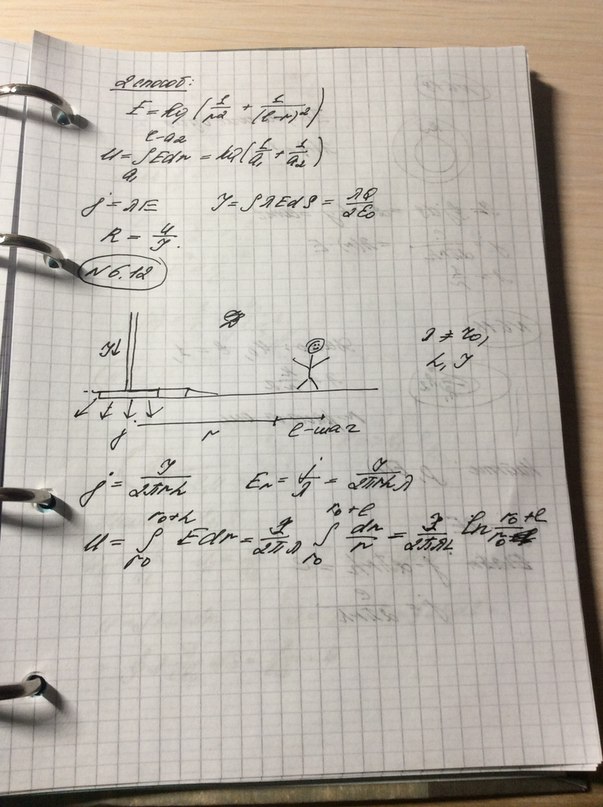 2 способ:
E = kq (1/r² + 1/(l-r)²)
U = ∫_{a₁}^{l-a₂} Edr = kq (1/a₁ + 1/a₂)
j = λE    I = ∫λEdS = λQ/2ε₀
R = U/I.
N 6.12
I↓
λ ≠ r₀,
h, I
j    r    l-шаг
j = I/2πrh    Eᵣ = j/λ = I/2πrhλ
U = ∫_{r₀}^{r₀+h} Edr = I/2πλ ∫_{r₀}^{r₀+l} dr/r = I/2πλh ln (r₀+l)/r₀